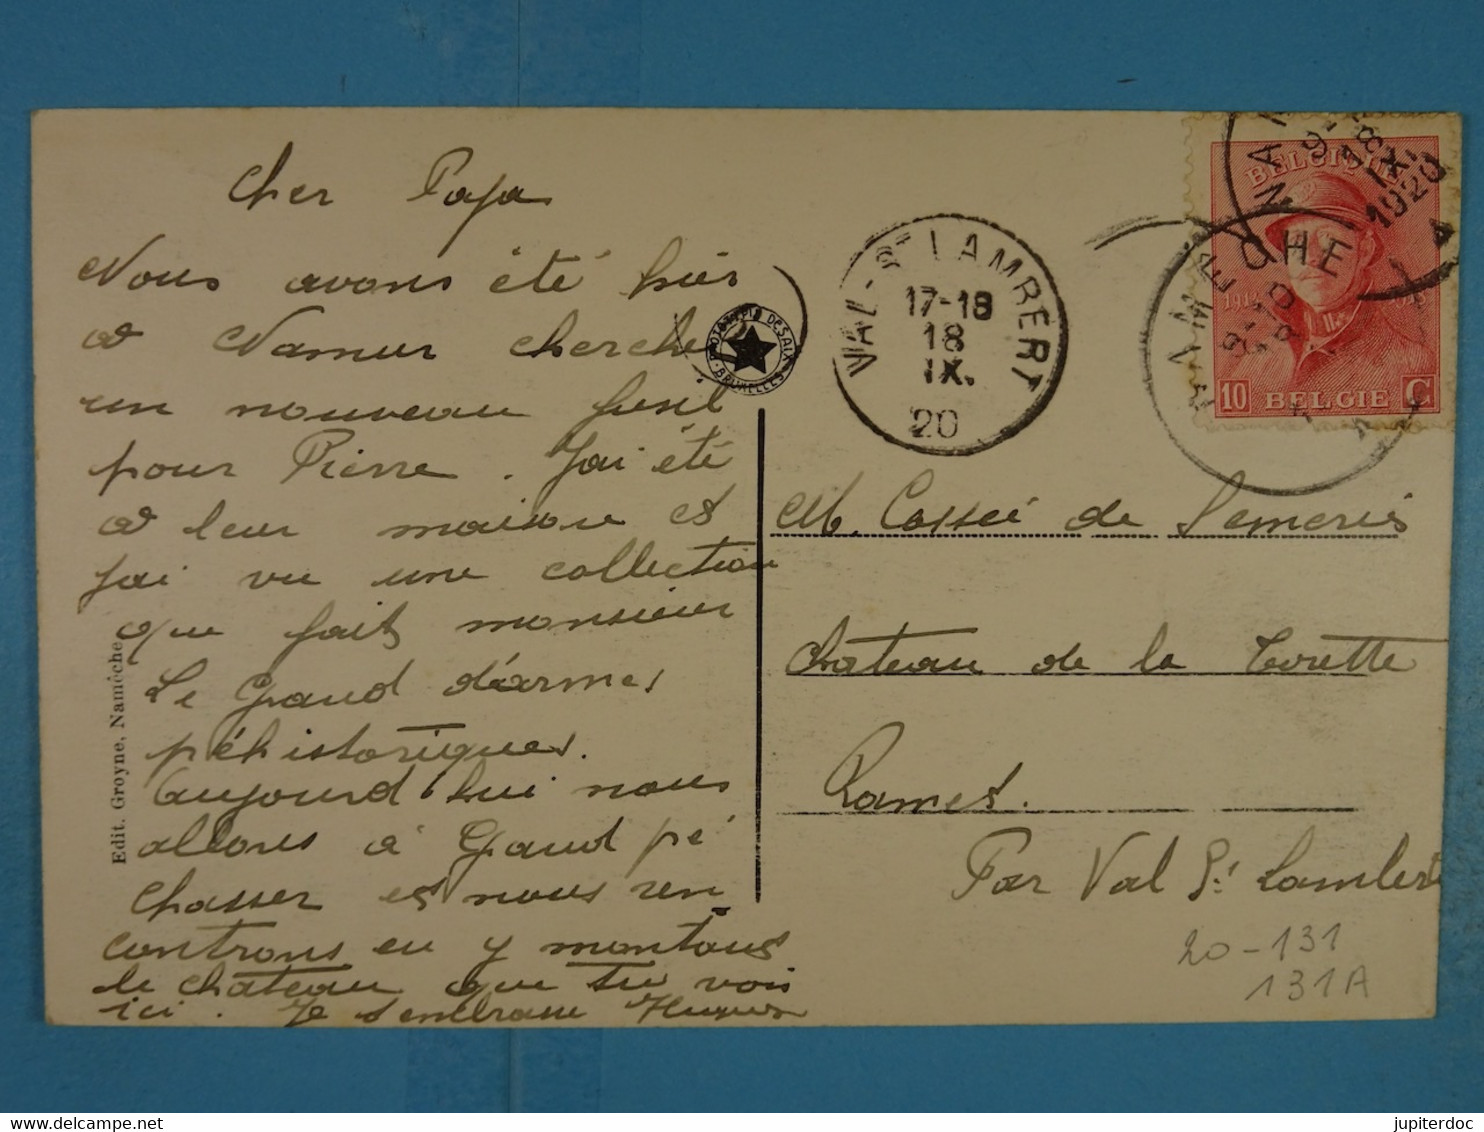 Cher Papa
Nous avons été hier
à Namur chercher
un nouveau fusil
pour Pierre. J'ai été
à leur maison et
j'ai vu une collection
que fait monsieur
Le Grand d'armes
préhistoriques.
Aujourd'hui nous
allons à Grand pé
chasser et nous ren
controns en y montant
le château que tu vois
ici. Je t'embrasse
Edit. Groyne, Namèche
PHOTOTYPIE DESAIX
BRUXELLES
VAL-ST LAMBERT
17-18
18
IX.
20
NAMECHE
18
IX.
1920
BELGIQUE
1914 1918
10 BELGIE C
M. Cossée de Semeries
Château de la Torette
Rames.
Par Val St Lambert
20-131
131A
jupiterdoc